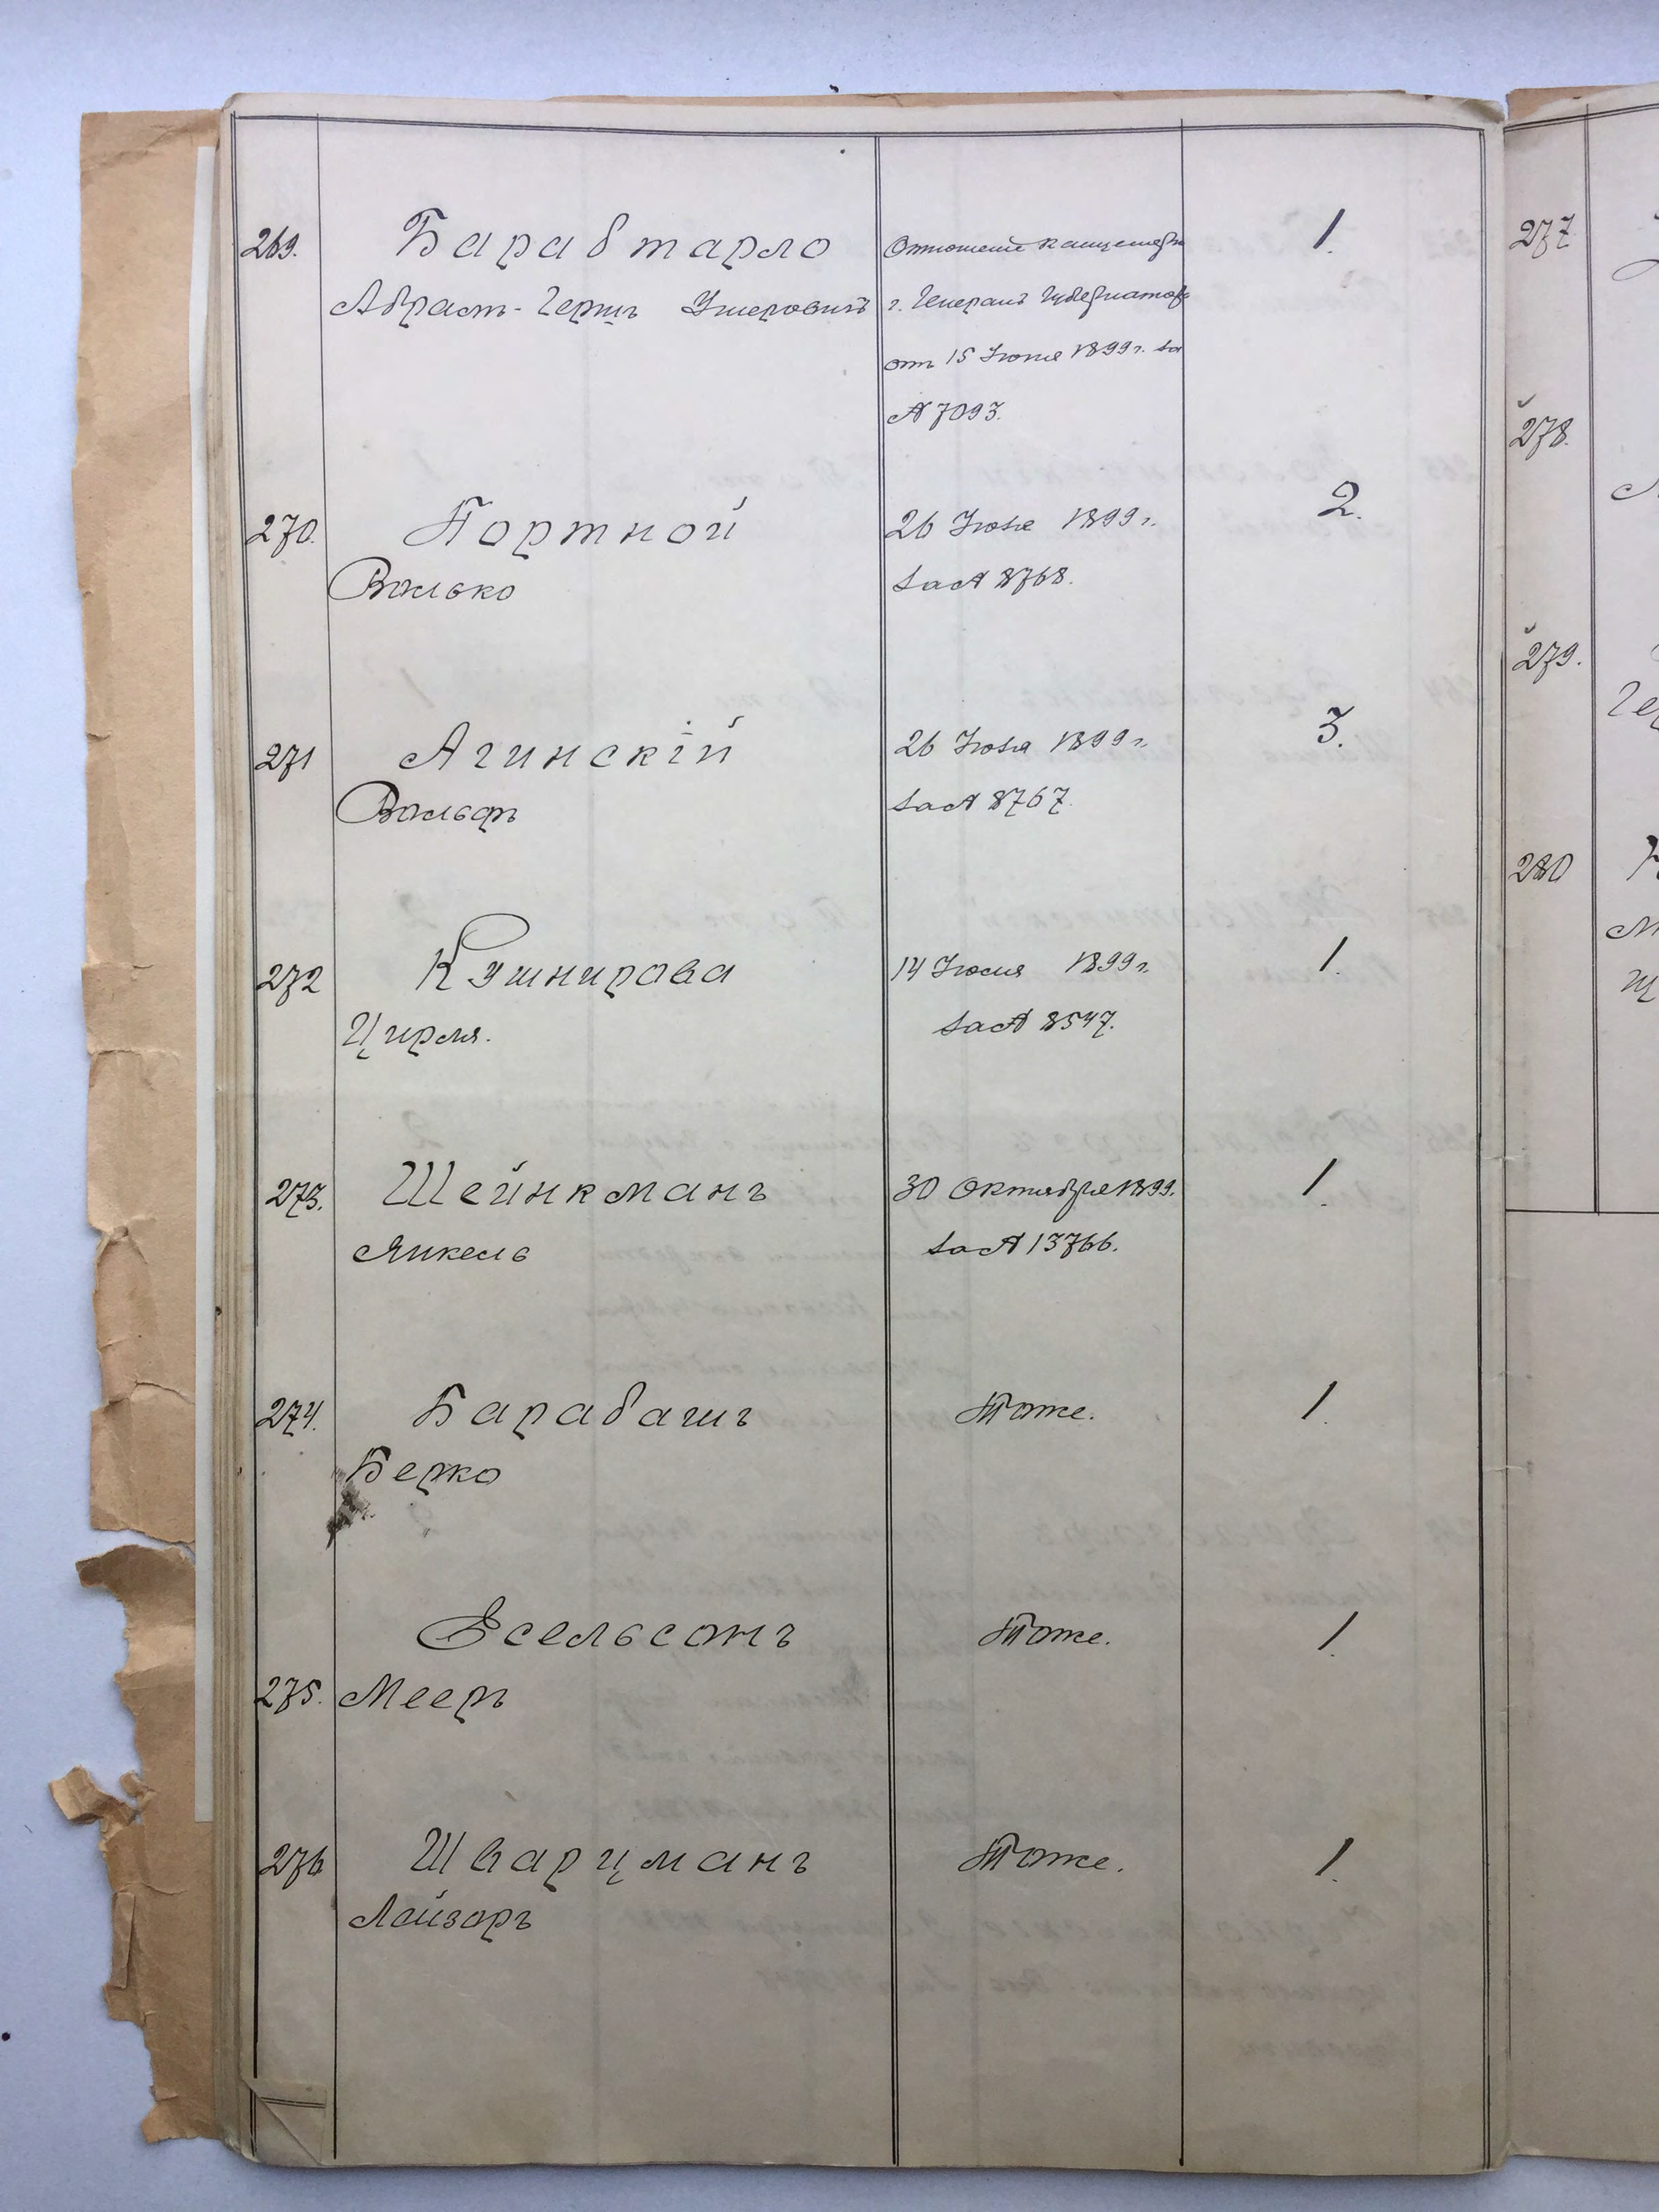 269. Барабтарло Отношенiе Канцелярiи 1.
Абрам-Герш Ушерович г. Генерал Губернатора
от 15 Iюня 1899 г. за
№ 7093.
270. Портной 26 Iюля 1899 г. 2.
Волько за № 8768.
271 Агинскiй 26 Iюля 1899 г. 3.
Вольфъ за № 8767.
272 Кушнирова 14 Iюля 1899 г. 1.
Цирля. за № 8547.
273. Шейнкманъ 30 Октября 1899. 1.
Янкель за № 13766.
274. Барабашъ Тоже. 1.
Берко
Есельсонъ Тоже. 1.
275. Мееръ
276 Шварцманъ Тоже. 1.
Лейзоръ
277
278.
279.
280